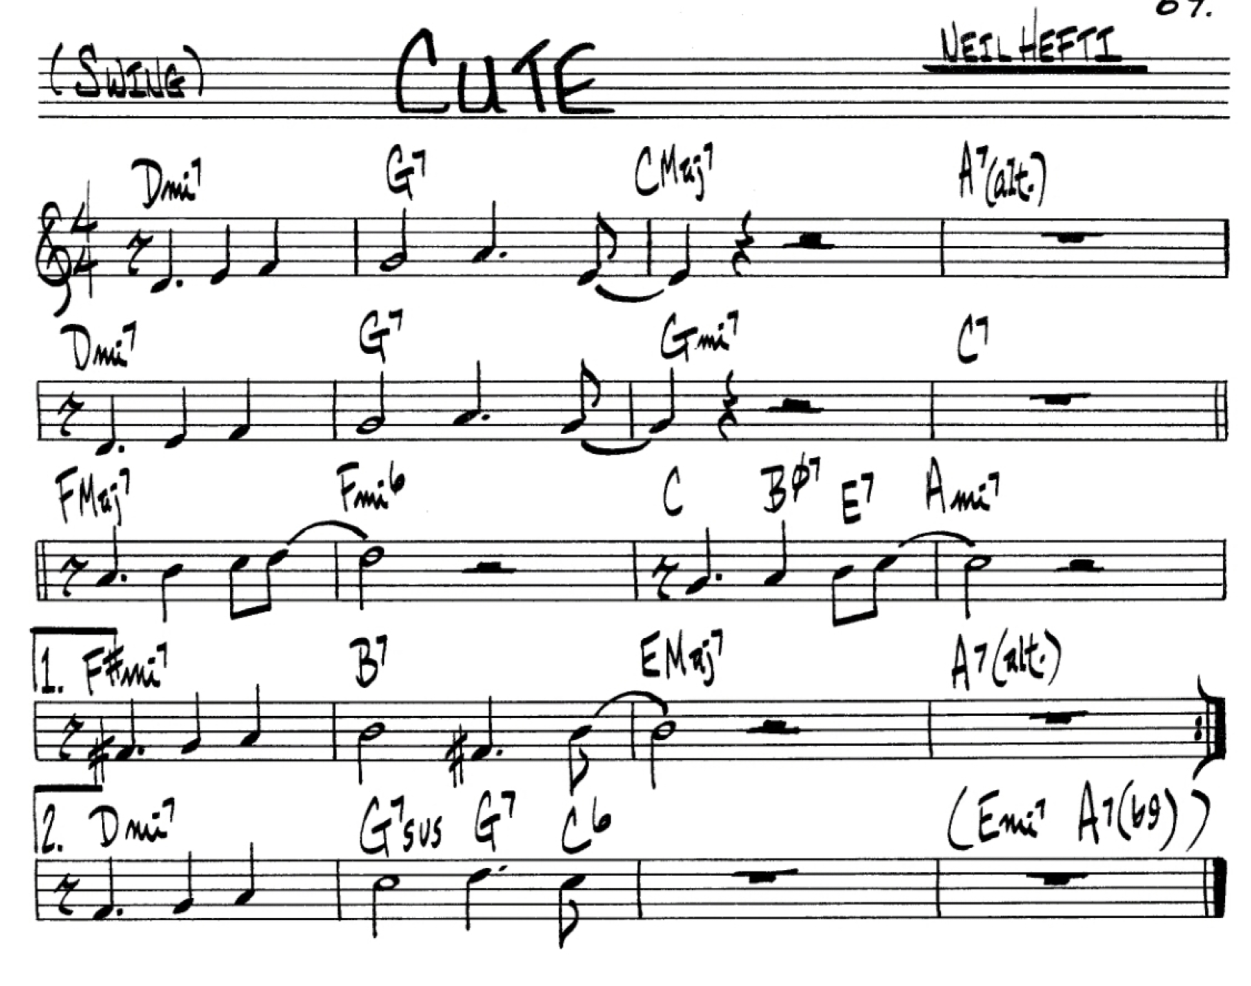 67.
(SWING) CUTE NEIL HEFTI
4
4
Dmi7 G7 CMaj7 A7(alt.)
Dmi7 G7 Gmi7 C7
FMaj7 Fmi6 C BØ7 E7 Ami7
1. F#mi7 B7 EMaj7 A7(alt.)
2. Dmi7 G7sus G7 C6 (Emi7 A7(b9))